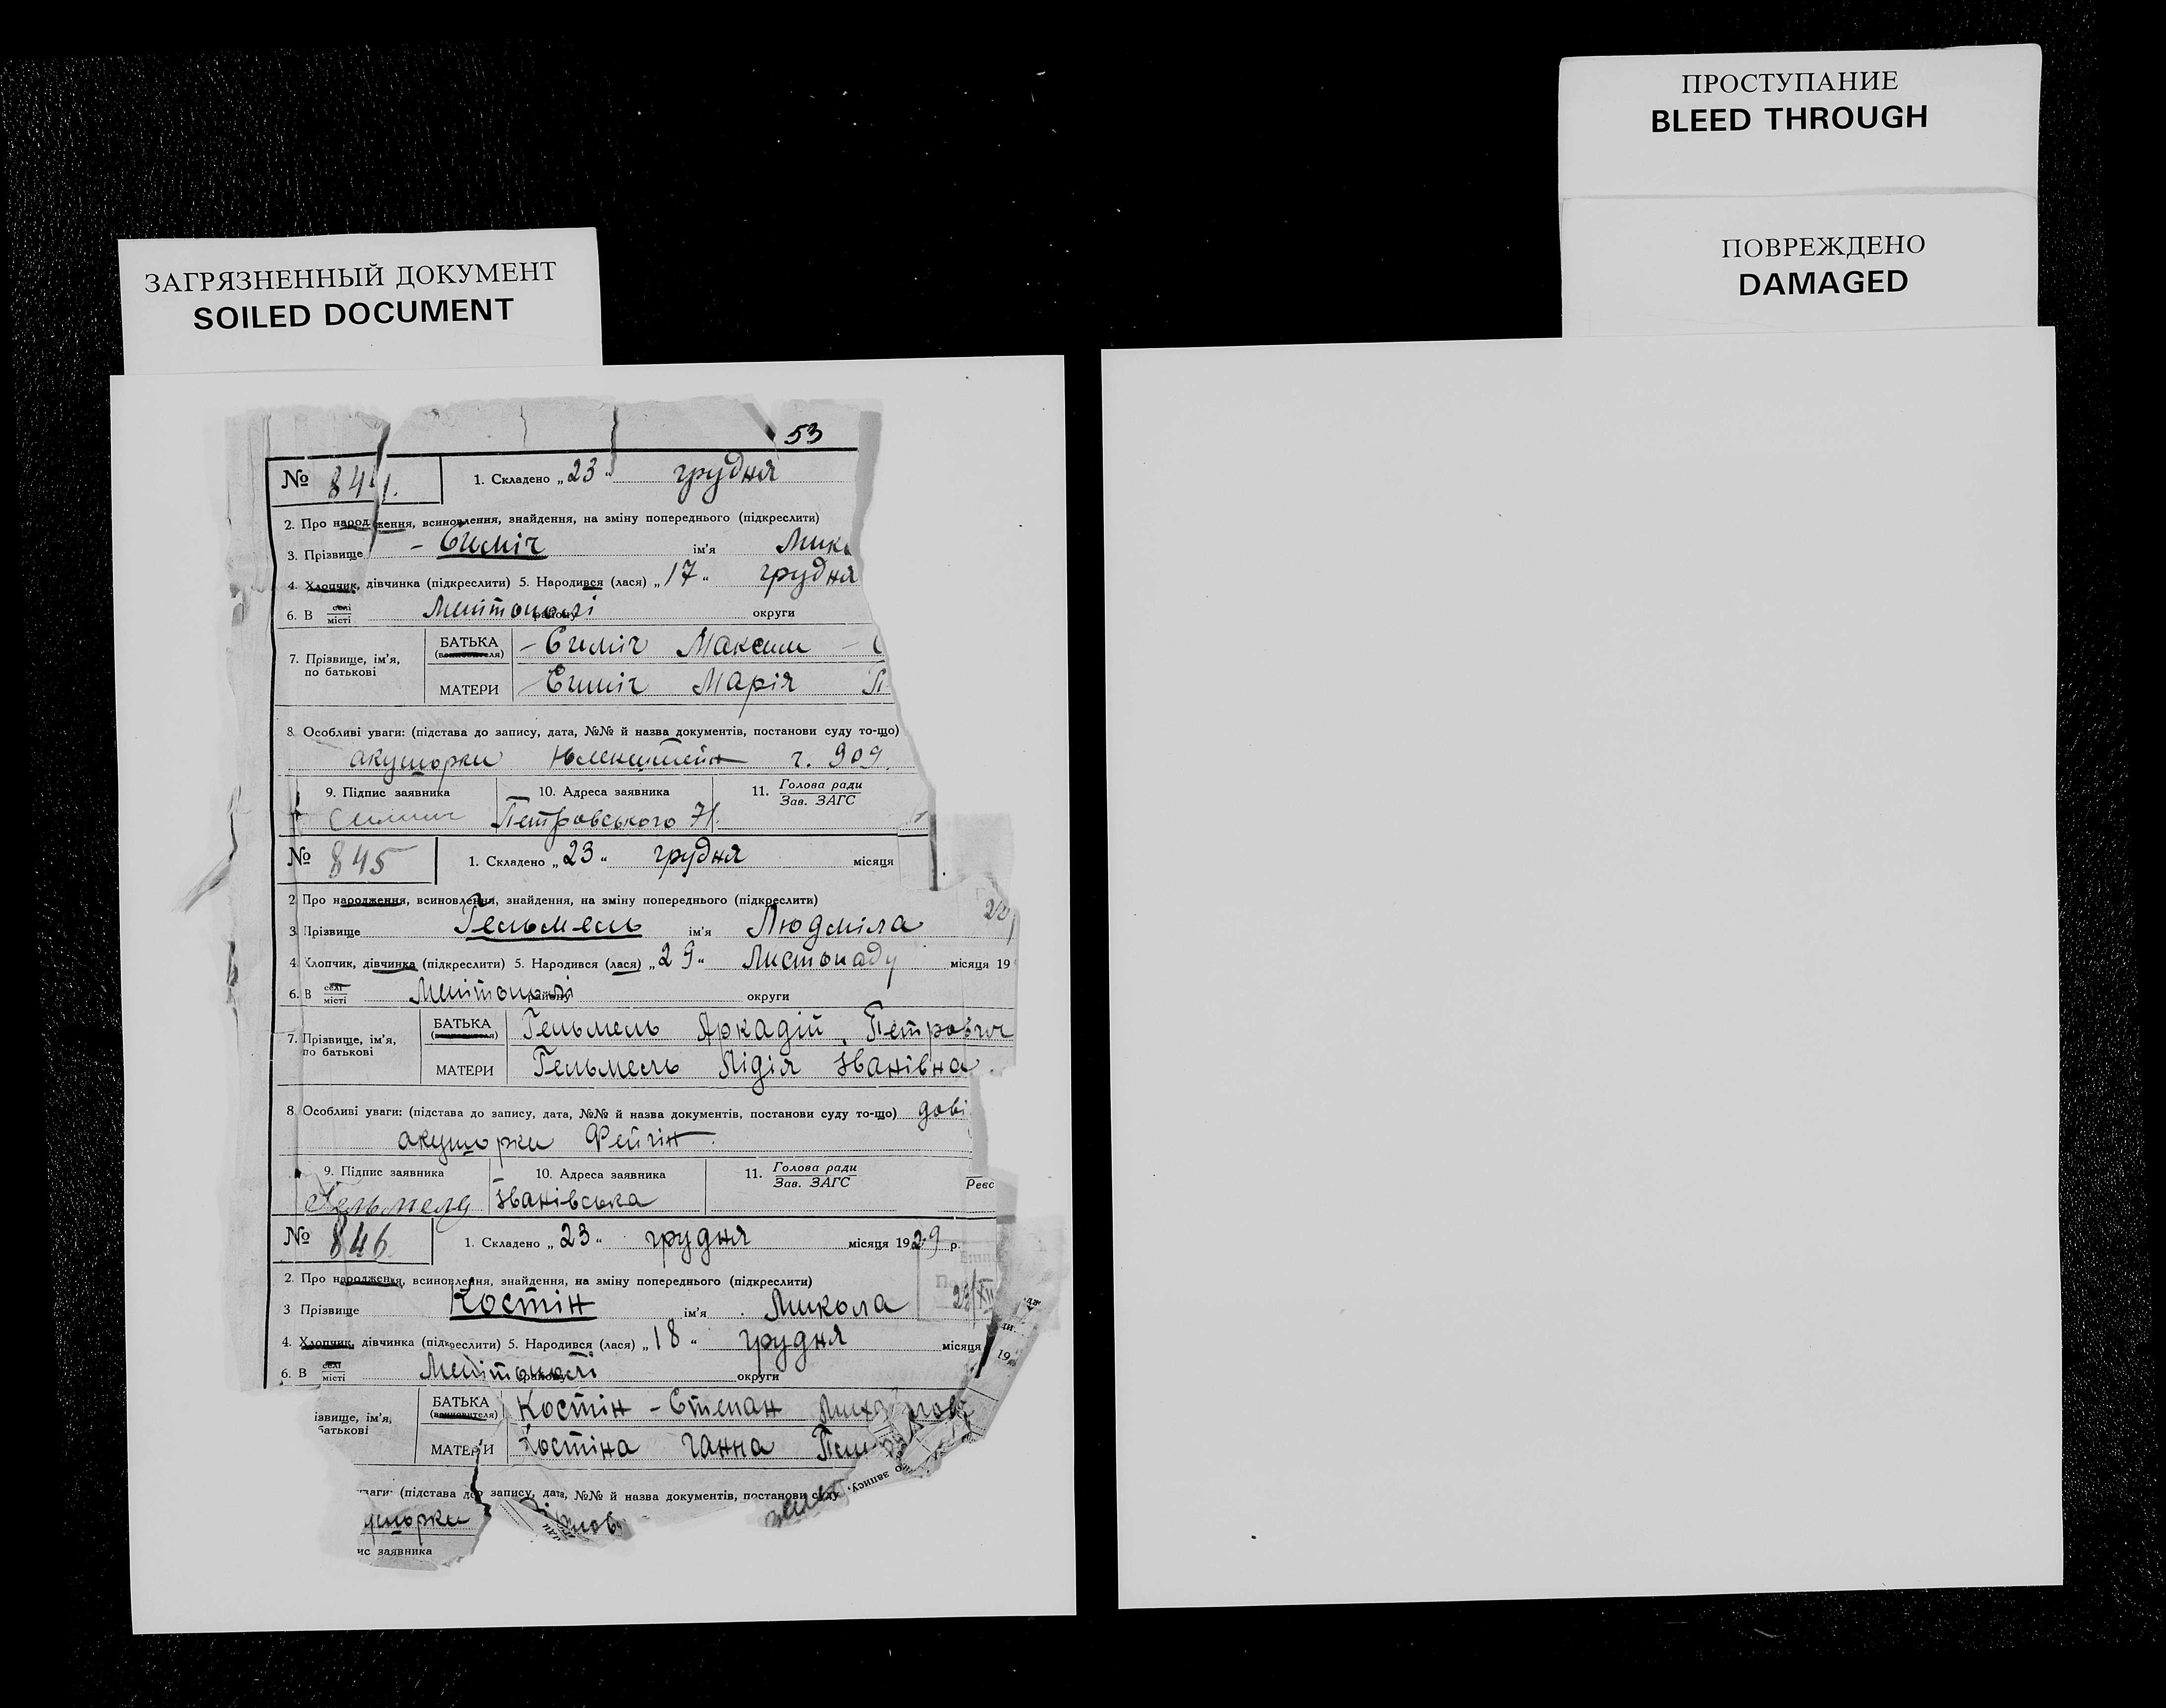 ЗАГРЯЗНЕННЫЙ ДОКУМЕНТ
SOILED DOCUMENT
ПРОСТУПАНИЕ
BLEED THROUGH
ПОВРЕЖДЕНО
DAMAGED
53
№ 844. 1. Складено „23“ грудня
2. Про народження, всиновлення, знайдення, на зміну попереднього (підкреслити)
3. Прізвище ім'я Мико
4. Хлопчик, дівчинка (підкреслити) 5. Народився (лася) „17“ грудня
6. В селі місті Мелітополі району округи
7. Прізвище, ім'я, по батькові
БАТЬКА Максим
МАТЕРИ Марія П
8. Особливі уваги: (підстава до запису, дата, №№ й назва документів, постанови суду то-що)
акушорки ч. 909.
9. Підпис заявника 10. Адреса заявника 11. Голова ради Зав. ЗАГС
Петровського 71.
№ 845 1. Складено „23“ грудня місяця
2. Про народження, всиновлення, знайдення, на зміну попереднього (підкреслити)
3. Прізвище Гельмель ім'я Людміла
4. Хлопчик, дівчинка (підкреслити) 5. Народився (лася) „29“ Листопаду місяця 19
6. В селі місті Мелітополі району округи
7. Прізвище, ім'я, по батькові
БАТЬКА Гельмель Аркадій Петрович
МАТЕРИ Гельмель Лідія Іванівна
8. Особливі уваги: (підстава до запису, дата, №№ й назва документів, постанови суду то-що) дові
акушорки Фейгін.
9. Підпис заявника 10. Адреса заявника 11. Голова ради Зав. ЗАГС Реєс
Іванівська
№ 846. 1. Складено „23“ грудня місяця 1929 р.
2. Про народження, всиновлення, знайдення, на зміну попереднього (підкреслити)
3 Прізвище Костін ім'я Микола
4. Хлопчик, дівчинка (підкреслити) 5. Народився (лася) „18“ грудня місяця 19
6. В селі місті Мелітополі району округи
ізвище, ім'я, батькові
БАТЬКА Костін - Степан
МАТЕРИ Костіна Ганна
ваги: (підстава до запису, дата, №№ й назва документів, постанови суду
ушорки
ис заявника